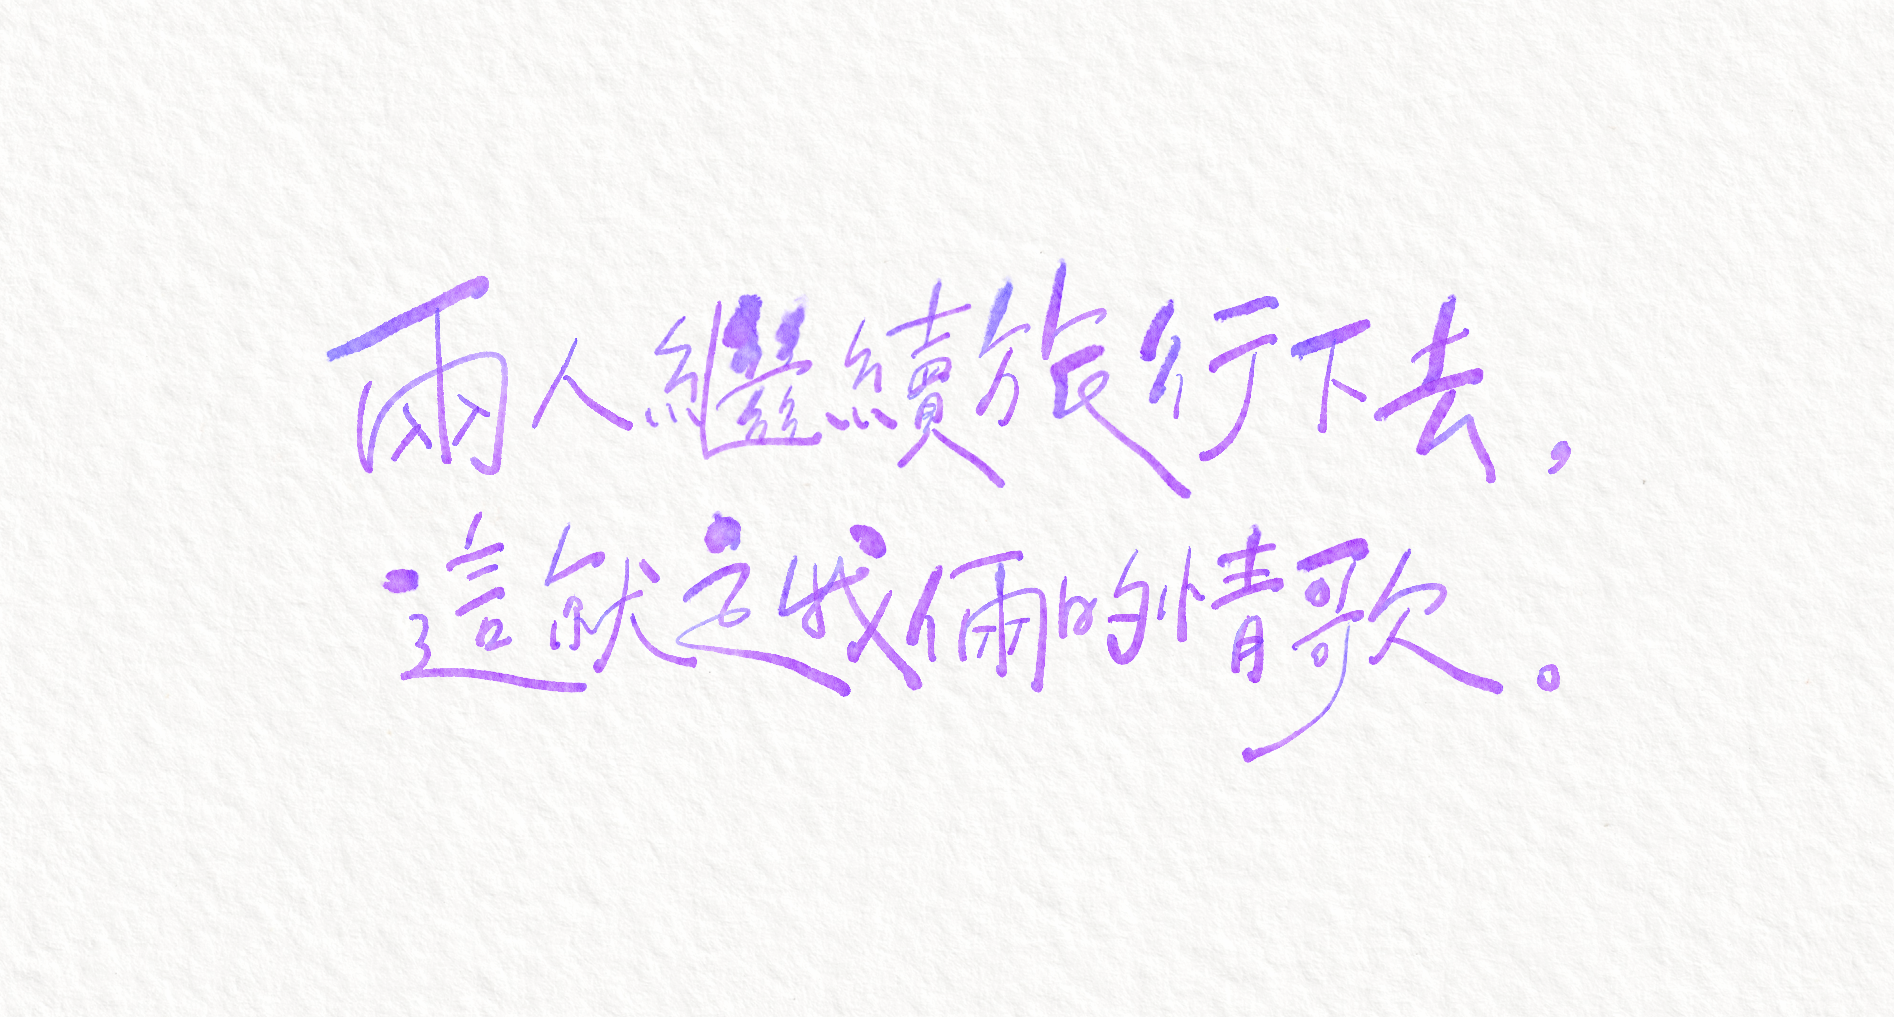 兩人繼續旅行下去，
這就是我倆的情歌。